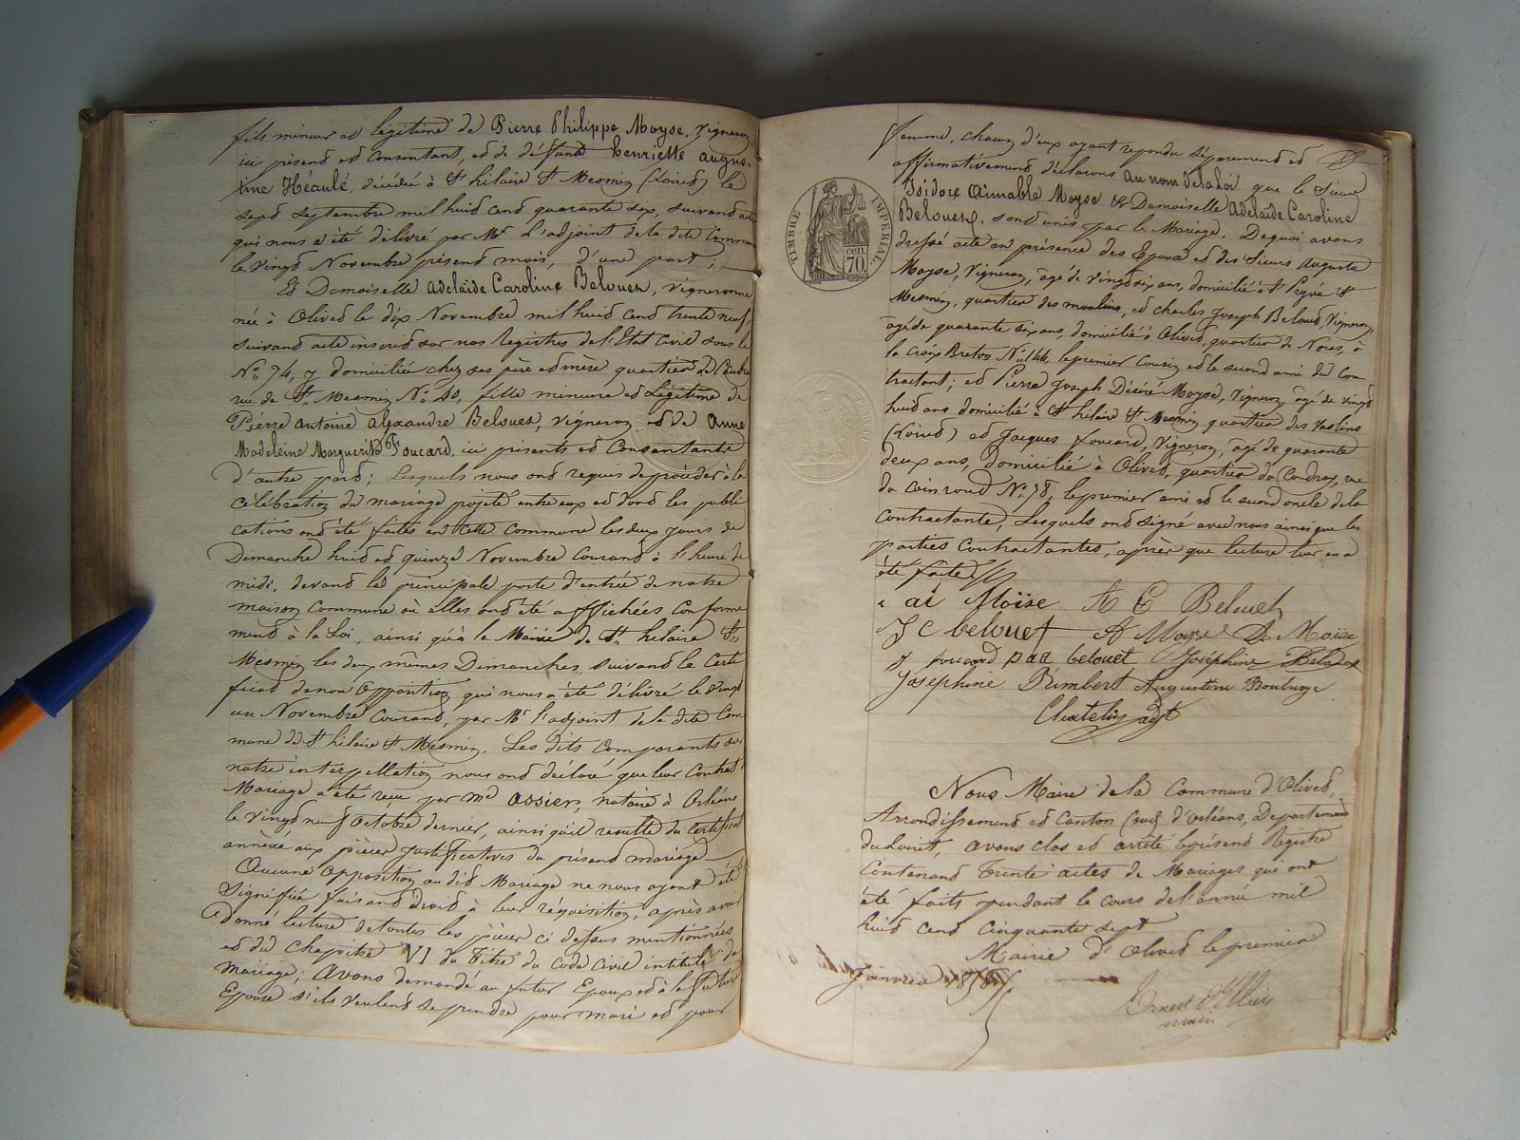 fils mineur et légitime de Pierre Philippe Moyse, vigneron
ici présent et consentant, et de défunte henriette augus-
tine Héaulé, décédée à St hilaire St Mesmin (Loiret) le
sept septembre mil huit cent quarante six, suivant acte
qui nous a été délivré par Mr L'adjoint de la dite Commune
le vingt Novembre présent mois, d'une part;
Et Demoiselle adelaïde Caroline Belouet, vigneronne
née à Olivet le dix Novembre mil huit cent trente neuf,
suivant acte inscrit sur nos Registres de l'Etat Civil sous le
No 74, y domiciliée chez ses père et mère quartier
rue de St Mesmin No 40, fille mineure et Légitime de
Pierre antoine alexandre Belouet, vigneron, et de anne
Madeleine Marguerite Foucard, ici présents et Consentants
d'autre part; Lesquels nous ont requis de procéder à la
célébration du mariage projeté entre eux et dont les publi
cations ont été faites en cette Commune les deux jours de
Dimanche huit et quinze Novembre Courant à l'heure de
midi, devant la principale porte d'entrée de notre
maison Commune où elles ont été affichées Conformé
ment à la Loi, ainsi qu'à la Mairie de St hilaire St
Mesmin les deux mêmes Dimanches suivant le Certi
ficat de non opposition qui nous a été délivré le vingt
un Novembre Courant, par Mr l'adjoint de la dite Com
mune de St hilaire St Mesmin. Les dits Comparants sur
notre interpellation nous ont déclaré que leur Contrat
Mariage a été reçu par Me assier, notaire à Orléans
le vingt neuf Octobre dernier, ainsi qu'il résulte du Certificat
annexé aux pièces justificatives du présent mariage
Aucune Opposition au dit Mariage ne nous ayant été
signifiée faisant droit à leur réquisition, après avoir
donné lecture de toutes les pièces ci dessus mentionnées
et du Chapitre VI du Titre du Code Civil intitulé du
mariage; Avons demandé au futur Epoux et à la future
Epouse s'ils veulent se prendre pour mari et pour
femme, chacun d'eux ayant répondu séparément et
affirmativement déclarons au nom de la loi que le Sieur
Isidore Aimable Moyse et Demoiselle adelaïde Caroline
Belouet, sont unis par le Mariage. De quoi avons
dressé acte en présence des Epoux et des Sieurs Auguste
Moyse, Vigneron, âgé de vingt six ans, domicilié à St St
Mesmin, quartier des moulins, et charles Joseph Belouet, Vigneron,
âgé de quarante six ans, domicilié à Olivet, quartier de Noras, à
la Croix Breton No 144, le premier Cousin et le second ami du Con
tractant; et Pierre Joseph Désiré Moyse, Vigneron, âgé de vingt
huit ans domicilié à St hilaire St Mesmin, quartier des
(Loiret) et Jacques foucard, Vigneron, âgé de quarante
deux ans, domicilié à Olivet, quartier du Coudray, rue
du Coinroud No 78, le premier ami et le second oncle de la
Contractante, Lesquels ont signé avec nous ainsi que les
parties Contractantes, après que lecture leur en a
été faite
TIMBRE IMPERIAL
70
ai Moïse A C Belouet
J C belouet A Moyse D Moïse
J foucard paa belouet Joséphine
Joséphine Rimbert Augustine
Chatelin adjt
Nous Maire de la Commune d'Olivet,
Arrondissement et Canton (sud) d'Orléans, Département
du Loiret, avons clos et arrêté le présent Registre
Contenant Trente actes de Mariages qui ont
été faits pendant le cours de l'année mil
huit cent Cinquante sept
Mairie d'Olivet le premier
Janvier 1858
maire